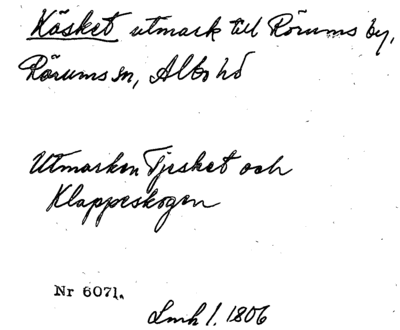 Kösket utmark till Rörums by,
Rörums sn, Albo hd
Utmarken Tjesket och
Klappeskogen
Nr 6071.
Lmh 1. 1806